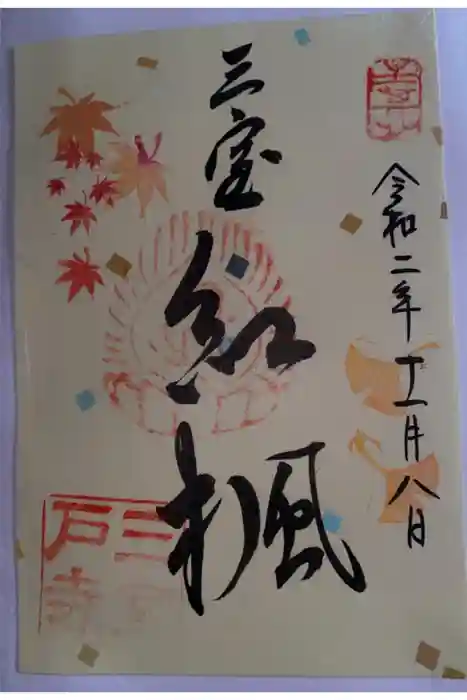 令和二年十一月八日
三室紅楓
三室戸寺